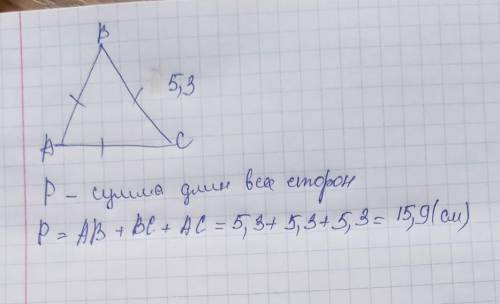 B
5,3
A C
P – сумма длин всех сторон
P = AB + BC + AC = 5,3 + 5,3 + 5,3 = 15,9 (см)